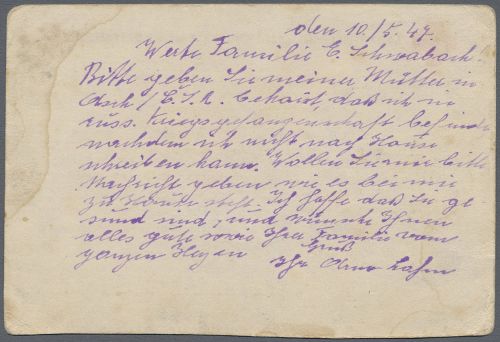 den 10./5. 47.
Werte Familie E. Schwabach.
Bitte geben Sie meiner Mutter in
Asch / Č.S.R. bekannt, daß ich in
russ. Kriegsgefangenschaft befinde
nachdem ich nicht nach Hause
schreiben kann. Wollen Sie mir bitte
Nachricht geben wie es bei mir
zu Hause steht. Ich hoffe daß Sie ge-
sund sind, und wünsche Ihnen
alles gute sowie Ihrer Familie vom
ganzen Herzen Gruß
Ihr Arno